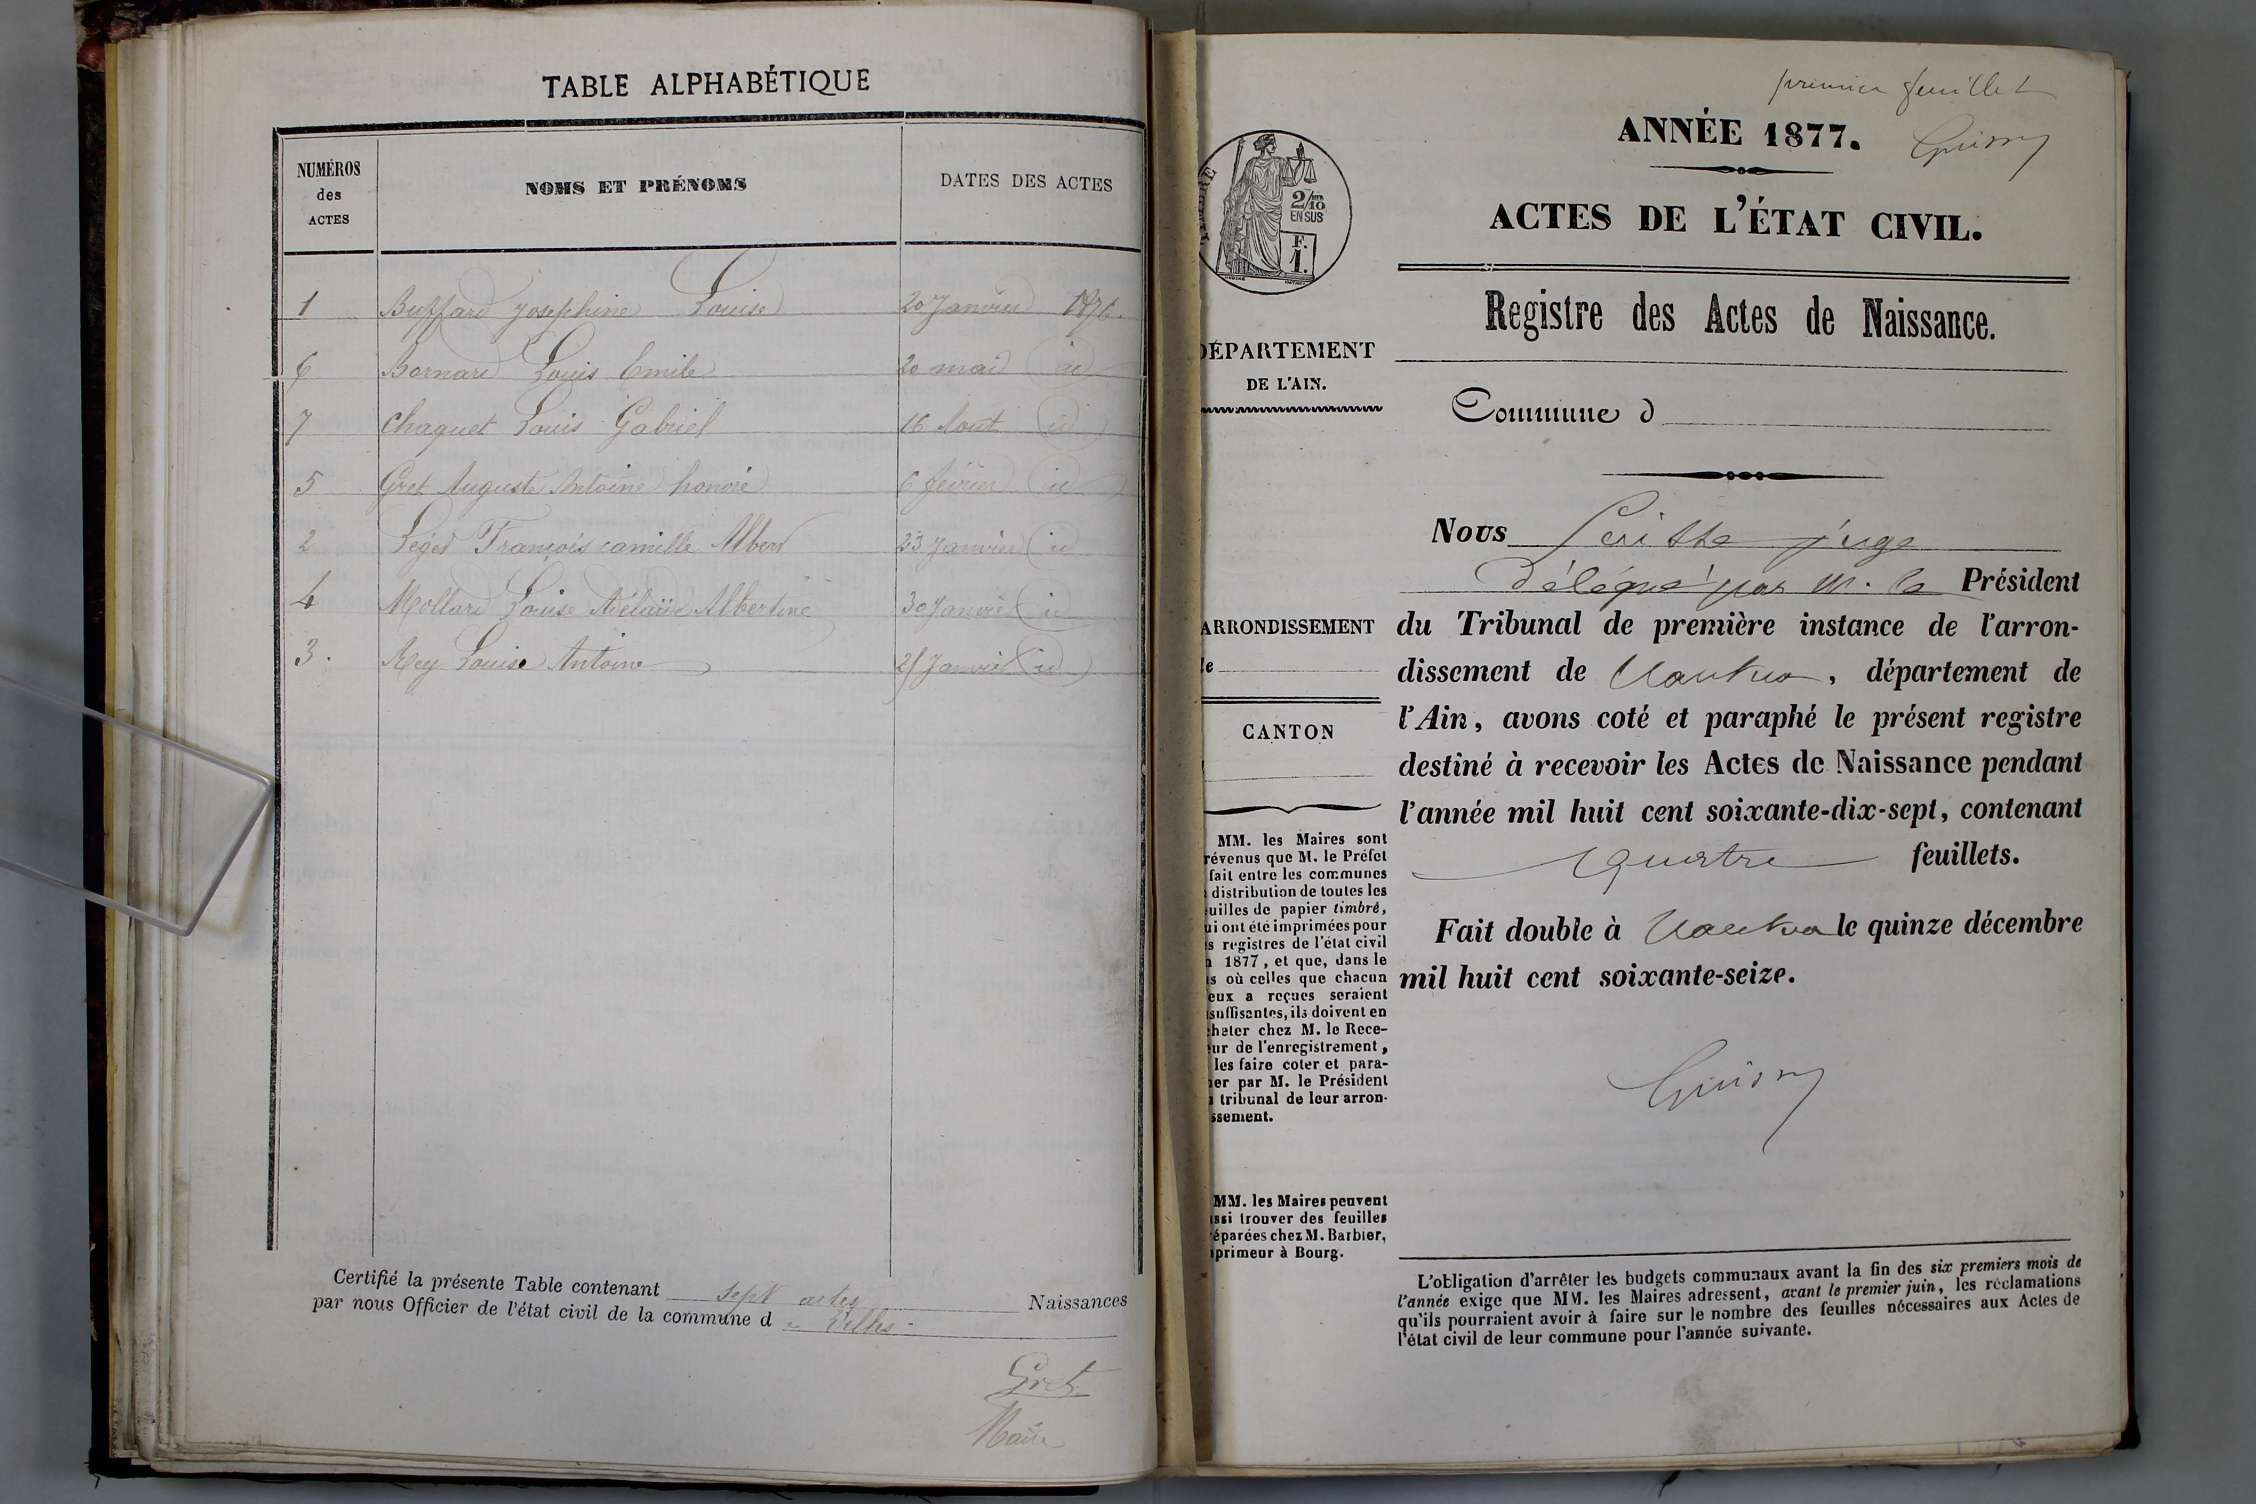 TABLE ALPHABÉTIQUE
NUMÉROS
des
ACTES
NOMS ET PRÉNOMS
DATES DES ACTES
1 Buffard Joséphine Louise 20 Janvier 1876.
6 Bornard Louis Emile 20 mai id
7 Chaquet Louis Gabriel 16 Aout id
5 Gret Auguste Antoine honoré 6 février id
2 Léger François camille Albert 23 Janvier id
4 Mollard Louise Adélaïde Albertine 30 Janvier id
3. Rey Louise Antoine Janvier id
Certifié la présente Table contenant sept actes Naissances
par nous Officier de l'état civil de la commune de Villes
Gret
Maire
premier feuillet
ANNÉE 1877.
ACTES DE L'ÉTAT CIVIL.
2/10
EN SUS
F.
1.
Registre des Actes de Naissance.
DÉPARTEMENT
DE L'AIN.
Commune d
Nous juge
délégué par M. le Président
ARRONDISSEMENT
du Tribunal de première instance de l'arron-
dissement de Nantua, département de
CANTON
l'Ain, avons coté et paraphé le présent registre
destiné à recevoir les Actes de Naissance pendant
l'année mil huit cent soixante-dix-sept, contenant
quatre feuillets.
Fait double à Nantua le quinze décembre
mil huit cent soixante-seize.
MM. les Maires sont
révenus que M. le Préfet
fait entre les communes
distribution de toutes les
uilles de papier timbré,
ui ont été imprimées pour
s registres de l'état civil
1877, et que, dans le
s où celles que chacun
eux a reçues seraient
suffisantes, ils doivent en
heter chez M. le Rece-
ur de l'enregistrement,
les faire coter et para-
er par M. le Président
tribunal de leur arron-
ssement.
MM. les Maires peuvent
ssi trouver des feuilles
éparées chez M. Barbier,
primeur à Bourg.
L'obligation d'arrêter les budgets communaux avant la fin des six premiers mois de
l'année exige que MM. les Maires adressent, avant le premier juin, les réclamations
qu'ils pourraient avoir à faire sur le nombre des feuilles nécessaires aux Actes de
l'état civil de leur commune pour l'année suivante.